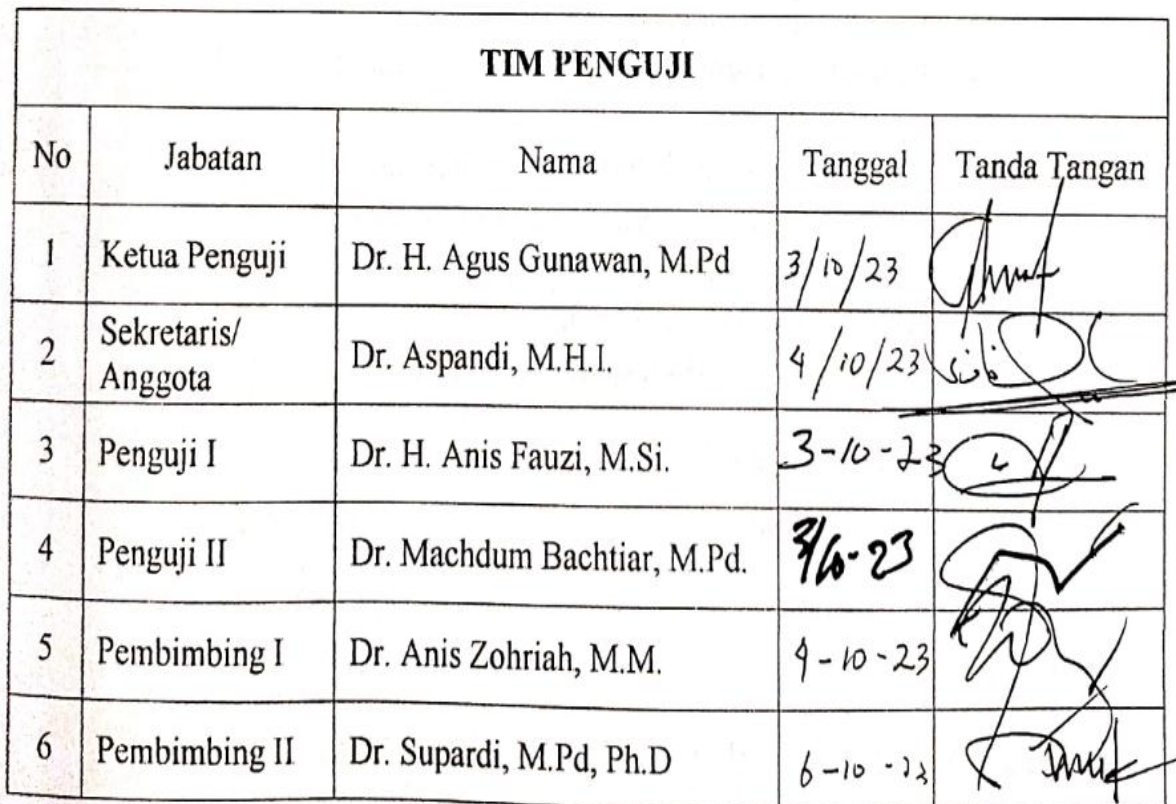 TIM PENGUJI
No Jabatan Nama Tanggal Tanda Tangan
1 Ketua Penguji Dr. H. Agus Gunawan, M.Pd 3/10/23
2 Sekretaris/
Anggota Dr. Aspandi, M.H.I. 4/10/23
3 Penguji I Dr. H. Anis Fauzi, M.Si. 3-10-23
4 Penguji II Dr. Machdum Bachtiar, M.Pd. 3/10-23
5 Pembimbing I Dr. Anis Zohriah, M.M. 4-10-23
6 Pembimbing II Dr. Supardi, M.Pd, Ph.D 6-10-23